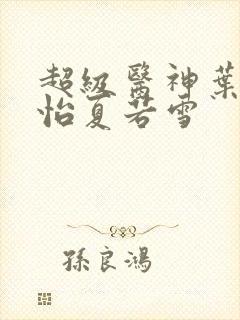 超級醫神葉
怡夏若雪
孫良鴻